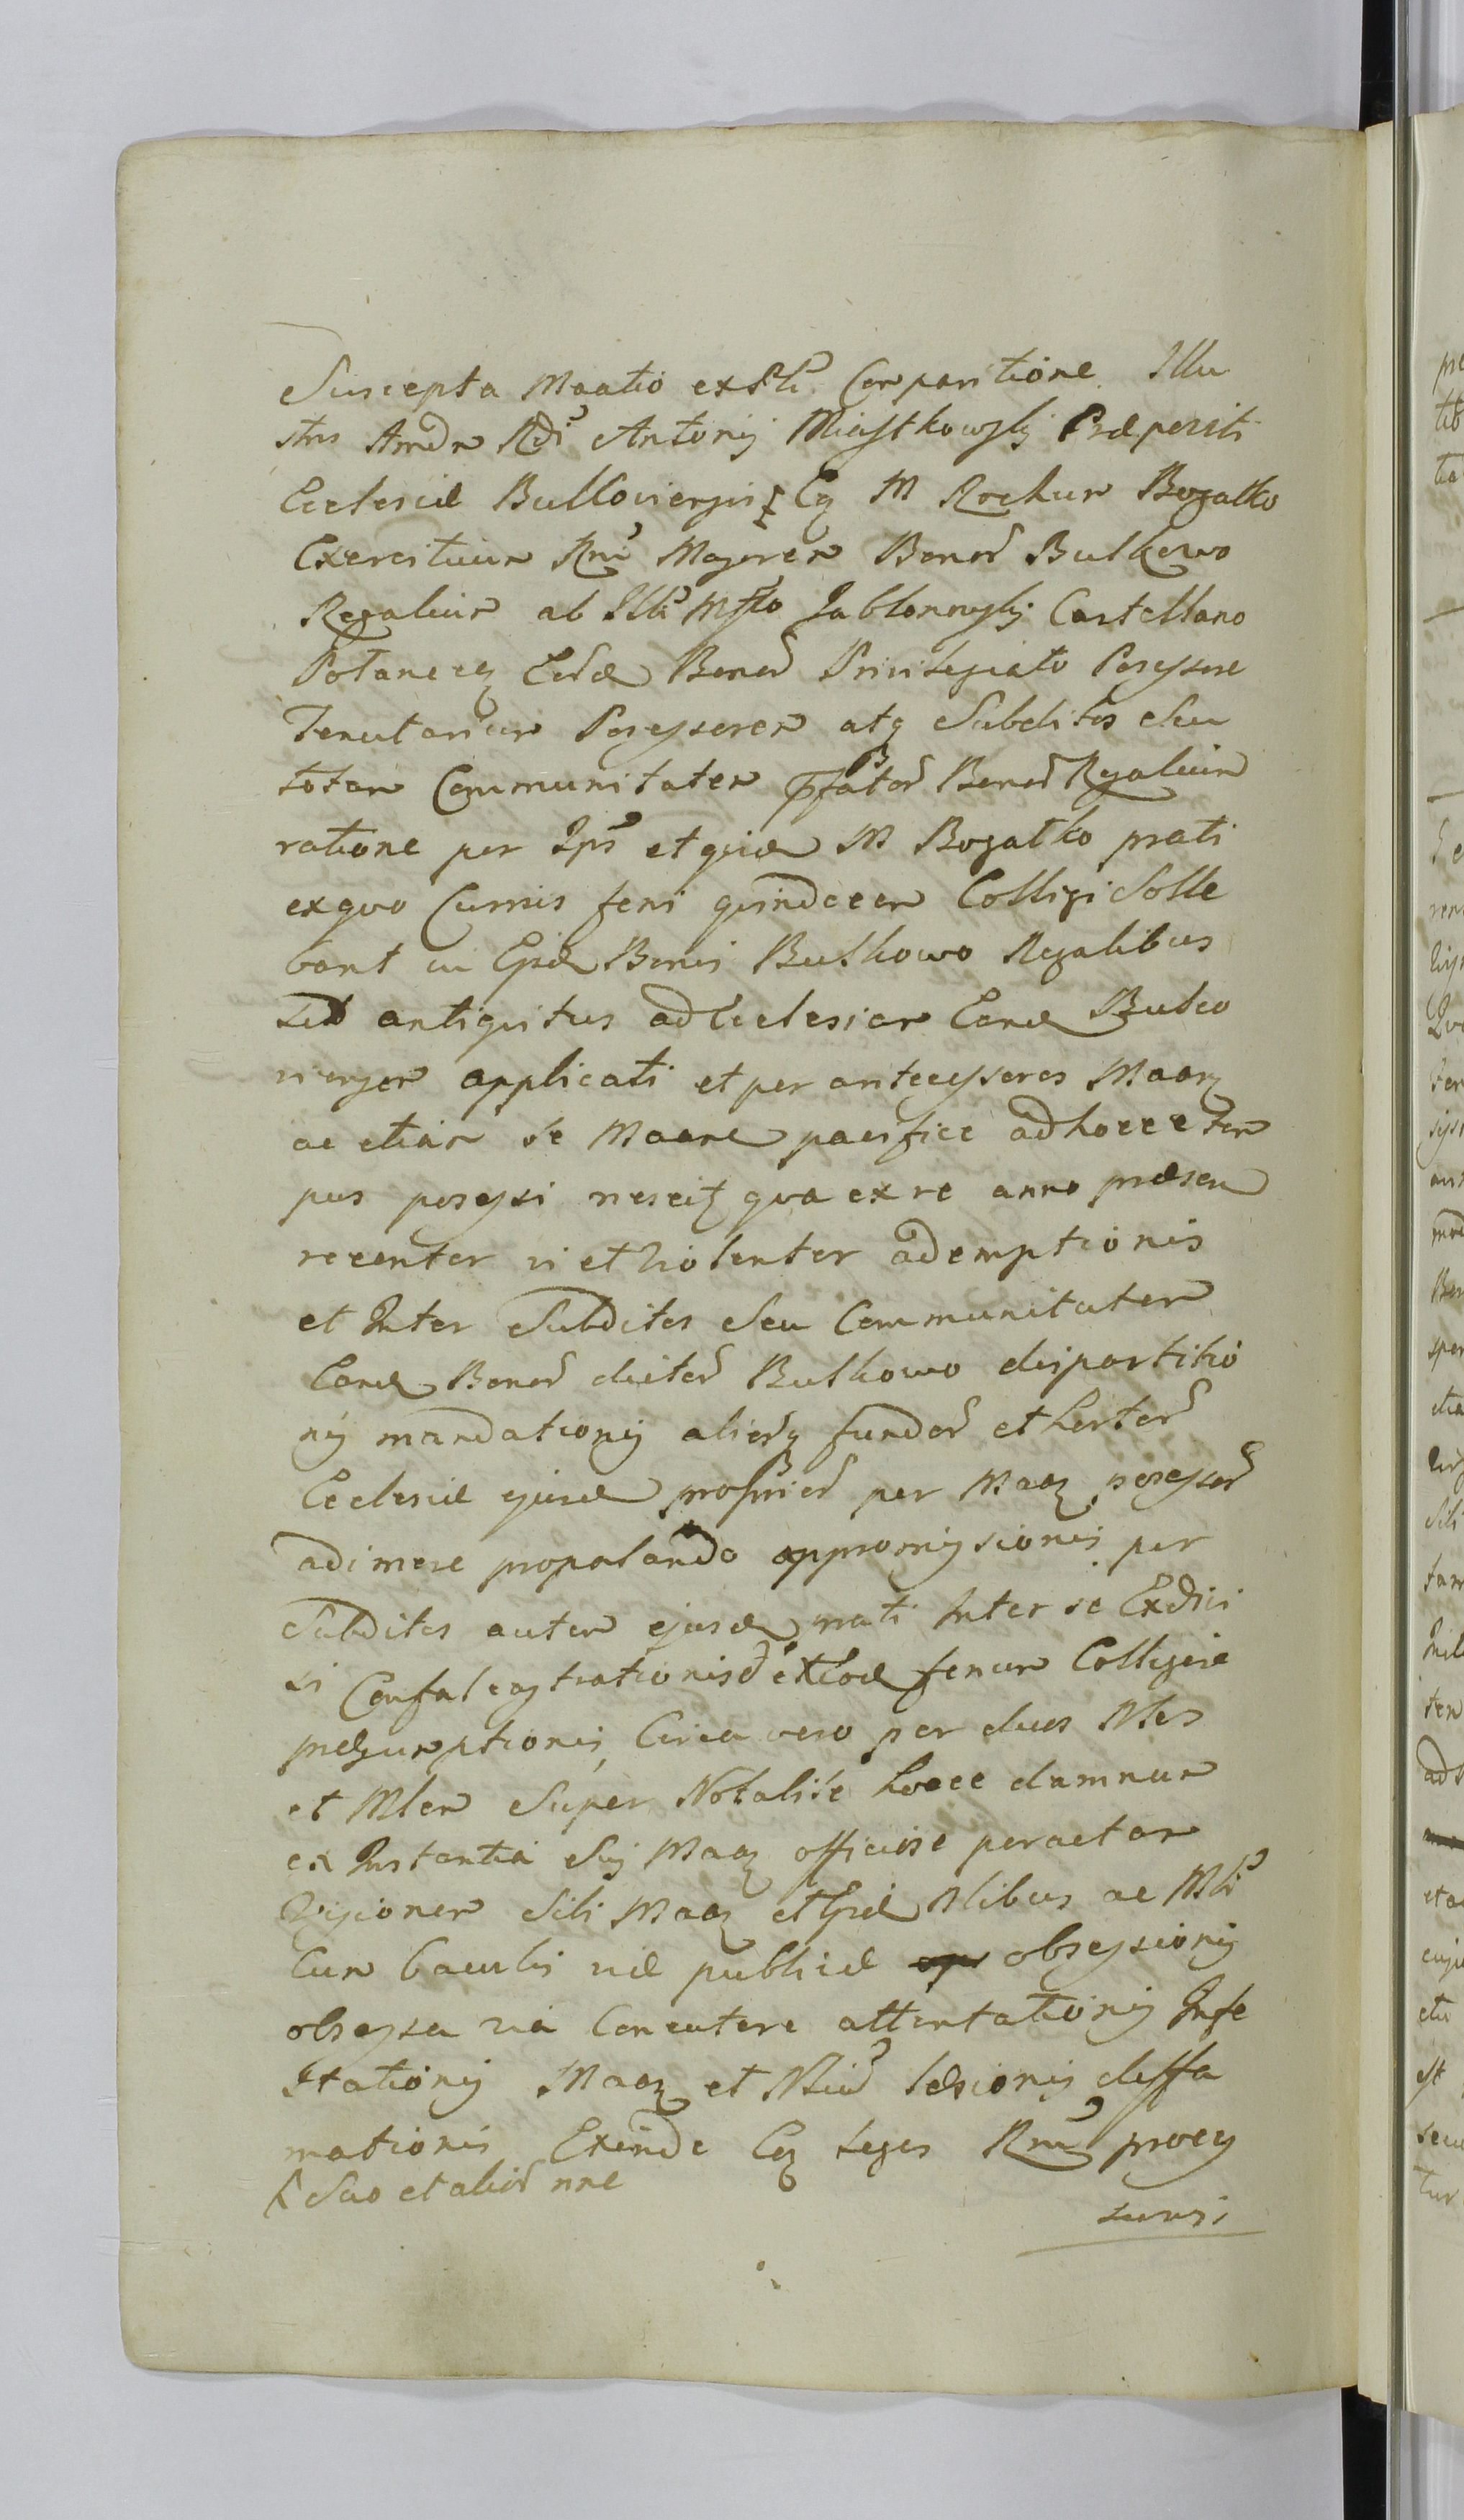 Suscepta Maatio ex Plt Comparitione Illu
stris Amdm Rdi Antonij Miastkowskj Præpositi
Ecclesiæ Bulkoviensis Cq M Rochum Bogatko
Exercituum Rni Majorem Bonor Bulkowo
Regalium ab Illi Mfco Jablonowskj Castellano
Eord Bonor Privilegiato Possessore
Tenutarium Possessorem atq Subditos seu
totam Communitatem pfator Bonor Regalium
ratione per Ips et quid M Bogatko prati
ex quo Currus feni quindecem Colligi Solle
bant in Ejsd Bonis Bulkowo Regalibus
siti antiquitus ad Ecclesiam Eand Bulco
viensem applicati et per antecessores Maarz
ac etiam se Maare pacifice ad hocce tem
pus possessi nescitz qua ex re anno præsen
recenter vi et violenter ademptionis
et Inter Subditos Seu Communitatem
Eand Bonor dictor Bulkowo dispartitio
nis mandationis aliorq fundor et hortor
Ecclesiæ ejusd proprior per Maarz possessor
adimere propalando appromissionis per
Subditos autem ejusd prati Inter se Exdivi
si Confalcastrationisq et Eod fenum Colligere
præsumptionis Circa vero per duos Nles
et Mlem Super Notalise hocce damnum
ex Instantia Sui Maarz officiose peractam
Visionem Sibi Maarz et Ijsd Nlibus ac Mli
Cum baculis viæ publicæ obsessionis
obsessa via Concutere attentationis Infe
stationis Maarz et Nliu læsionis diffa
mationis Exinde Cq leges Rni proces
Suo et alior nne
sumsi